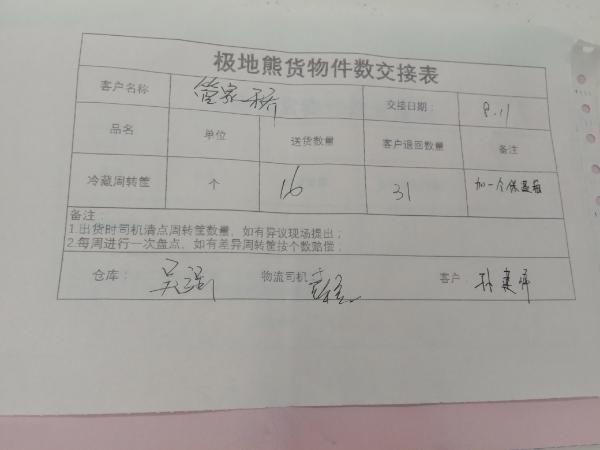 极地熊货物件数交接表
客户名称 管家桥 交接日期： 9.11
品名 单位 送货数量 客户退回数量 备注
冷藏周转筐 个 16 31 加一个保温箱
备注：
1.出货时司机清点周转筐数量，如有异议现场提出；
2.每周进行一次盘点，如有差异周转筐按个数赔偿；
仓库： 吴强 物流司机 客户：